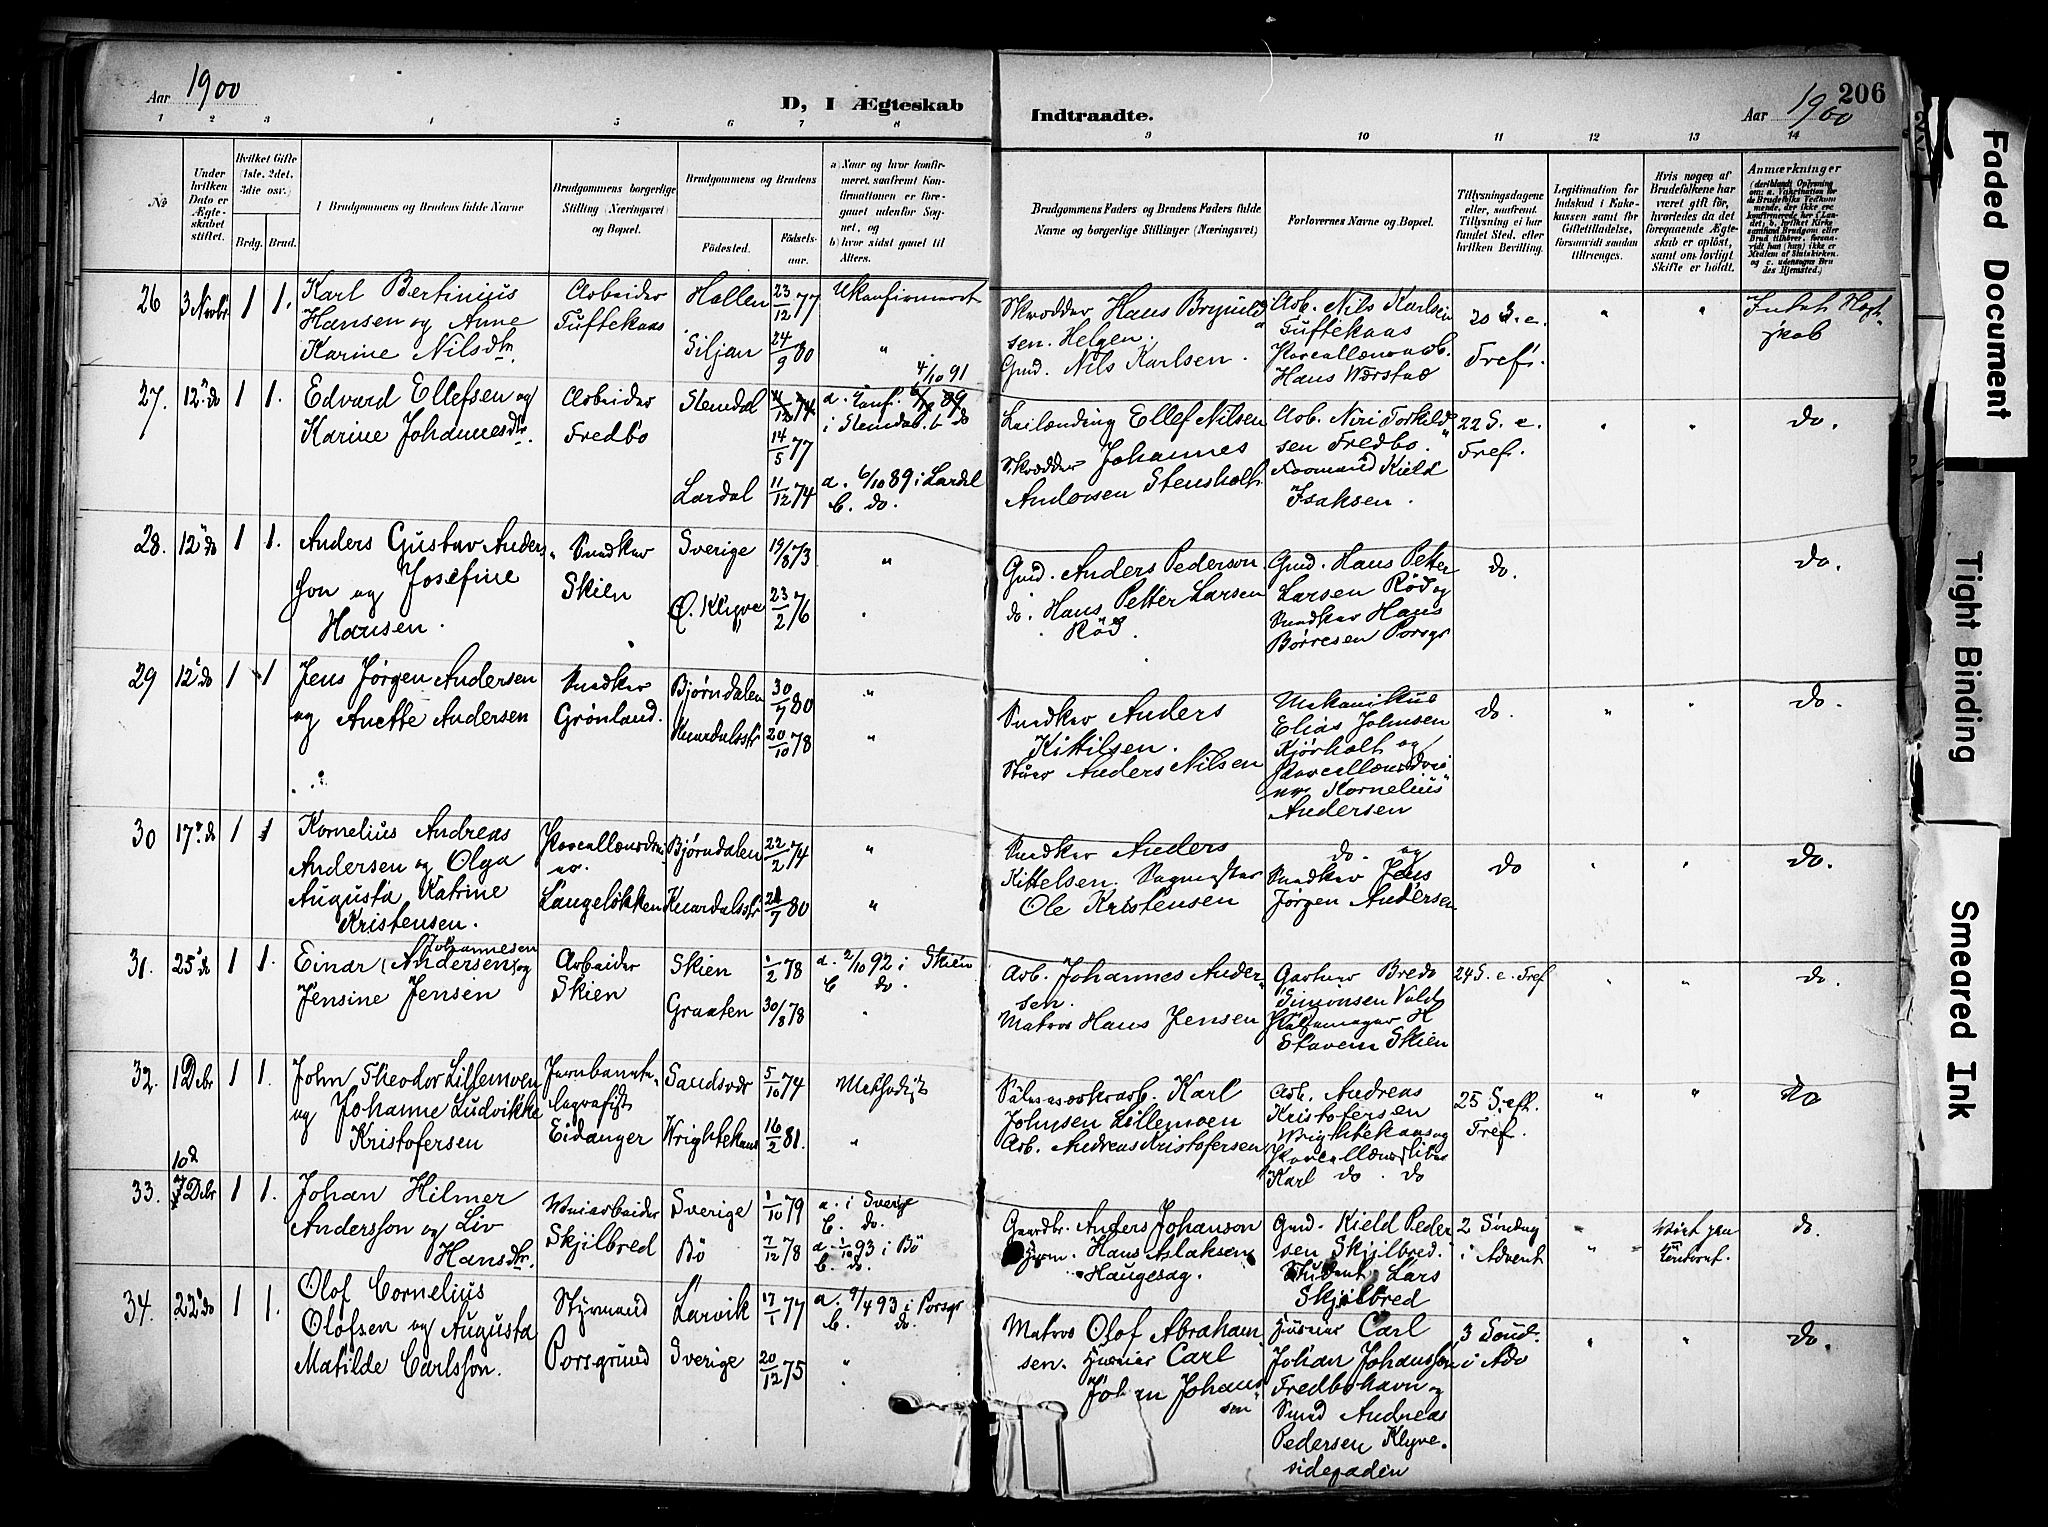 Aar 1900
D, I Ægteskab
Indtraadte.
Aar 1900
206
1 2 3 4 5 6 7 8
9 10 11 12 13 14
No
Under hvilken Dato er Ægteskabet stiftet.
Hvilket Gifte (1ste. 2det. 3die osv.)
Brdg. Brud.
Brudgommens og Brudens fulde Navne
Brudgommens borgerlige Stilling (Næringsvei) og Bopæl.
Brudgommens og Brudens
Fødested.
Fødselsaar.
a) Naar og hvor konfirmeret, saafremt Konfirmationen er foregaaet udenfor Sognet, og
b) hvor sidst gaaet til Alters.
Brudgommens Faders og Brudens Faders fulde Navne og borgerlige Stillinger (Næringsvei)
Forlovernes Navne og Bopæl.
Tillysningsdagene eller, saafremt Tillysning ei har fundet Sted, efter hvilken Bevilling.
Legitimation for Indskud i Enkekassen samt for Giftetilladelse, forsaavidt saadan tiltrænges.
Hvis nogen af Brudefolkene har været gift før, hvorledes da det foregaaende Ægteskab er opløst, samt om lovligt Skifte er holdt.
Anmærkninger
26 3 Novbr 1 1.
Karl Bertinius
Hansen og Anne
Karine Nilsdtr.
Arbeider
Tuftekaas
Hollen 23/12 77
Siljan 24/3 80
Ukonfirmeret
"
Skrædder Hans Brynild
sen. Helgen.
Gmd. Nils Karlsen.
Arb. Nils Karlsen
Tuftekaas
Porcellænsarb.
Hans Værstad
20 S. e.
Tref.
" "
27. 12 do 1 1.
Edvard Ellefsen og
Karine Johannesdtr.
Arbeider
Fredbo
Slemdal 11/12 74
14/5 77
Lardal 11/12 74
4/10 91
a. Konf. 6/10 89
i Slemdal. b do
a. 6/10 89 i Lardal
b. do.
Leilænding Ellef Nilsen
Skrædder Johannes
Andersen Stensholt
sen Fredbo.
Formand Kield
Isaksen.
22 S. e.
Tref.
" "
do.
28. 12 do 1 1.
Anders Gustav Anders
son og Josefine
Hansen.
Snedker
Skien
Sverige 19/8 73
Ø. Klyve 23/2 76
"
Gmd. Anders Pederson
do. Hans Petter Larsen
Rød.
Gmd. Hans Peter
Larsen Rød og
Snedker Hans
Børresen Porsgr
do.
do.
29 12 do 1 1
Jens Jørgen Andersen
og Anette Andersen
Snedker
Grønland.
Bjørndalen 30/7 80
Knardalsstr 20/10 78
"
"
Snedker Anders
Kittilsen.
Stuer Anders Nilsen
Mekanikus
Elias Johnsen
Kjørholt og
Porcellænsdrei
er Kornelius
Andersen
do.
" "
do.
30 17. do 1 1
Kornelius Andreas
Andersen og Olga
Augusta Katrine
Kristensen.
Porcellænsdrei
er.
Langeløkken
Bjørndalen 22/2 74
Knardalsstr 21/7 80
"
"
Snedker Anders
Kittelsen. Sagmester
Ole Kristensen
do. og
Snedker Jens
Jørgen Andersen
do
" "
do.
31. 25 do 1 1.
Johannesen
Einar (Andersen) og
Jensine Jensen
Arbeider
Skien
Skien 1/2 78
Graaten 30/8 78
a. 2/10 92 i Skien
b do.
Arb. Johannes Ander
sen.
Matros Hans Jensen
Gartner Brede
Simonsen Vold
Pølsemager H
Stavem Skien
24 S. e. Tref
" "
do.
32. 1 Debr 1 1.
John Theodor Lillemoen
og Johanne Ludvikke
Kristofersen
Jernbanete
legrafist
Eidanger
Sandsvær 5/10 74
Wrightekaas 16/2 81.
Methodist
"
Sølvværksarb. Karl
Johnsen Lillemoen
Arb. Andreas Kristofersen
Arb. Andreas
Kristofersen
Wrightekaas og
Karl do. do
25 S. eft.
Tref.
" "
do
33. 7 Debr 1 1.
Johan Hilmer
Andersson og Liv
Hansdtr.
Veiarbeider
Skjilbred
Sverige 1/10 79
Bø 7/12 78
a. i Sverige
b. do.
a. 1/10 93 i Bø
b. do.
Gaardbr. Anders Johanson
Hans Aslaksen
Haugesag.
Gmd. Kield Peder
sen Skjilbred.
Student Lars
Skjilbred
2 Søndag
i Advent
do.
34. 22 do 1 1.
Olof Cornelius
Olofsen og Augusta
Matilde Carlsson.
Styrmand
Porsgrund
Larvik 17/1 77
Sverige 20/12 75
a. 9/4 93 i Porsgr
b. do.
"
Matros Olof Abraham
sen. Carl
Johan Johans
sen
Carl
Johan Johansson
Fredbohavn og
Smed Andreas
Pedersen Klyve-
sidegaden
3 Sønd.
i Adv
" "
do.
Faded Document
Tight Binding
Smeared Ink